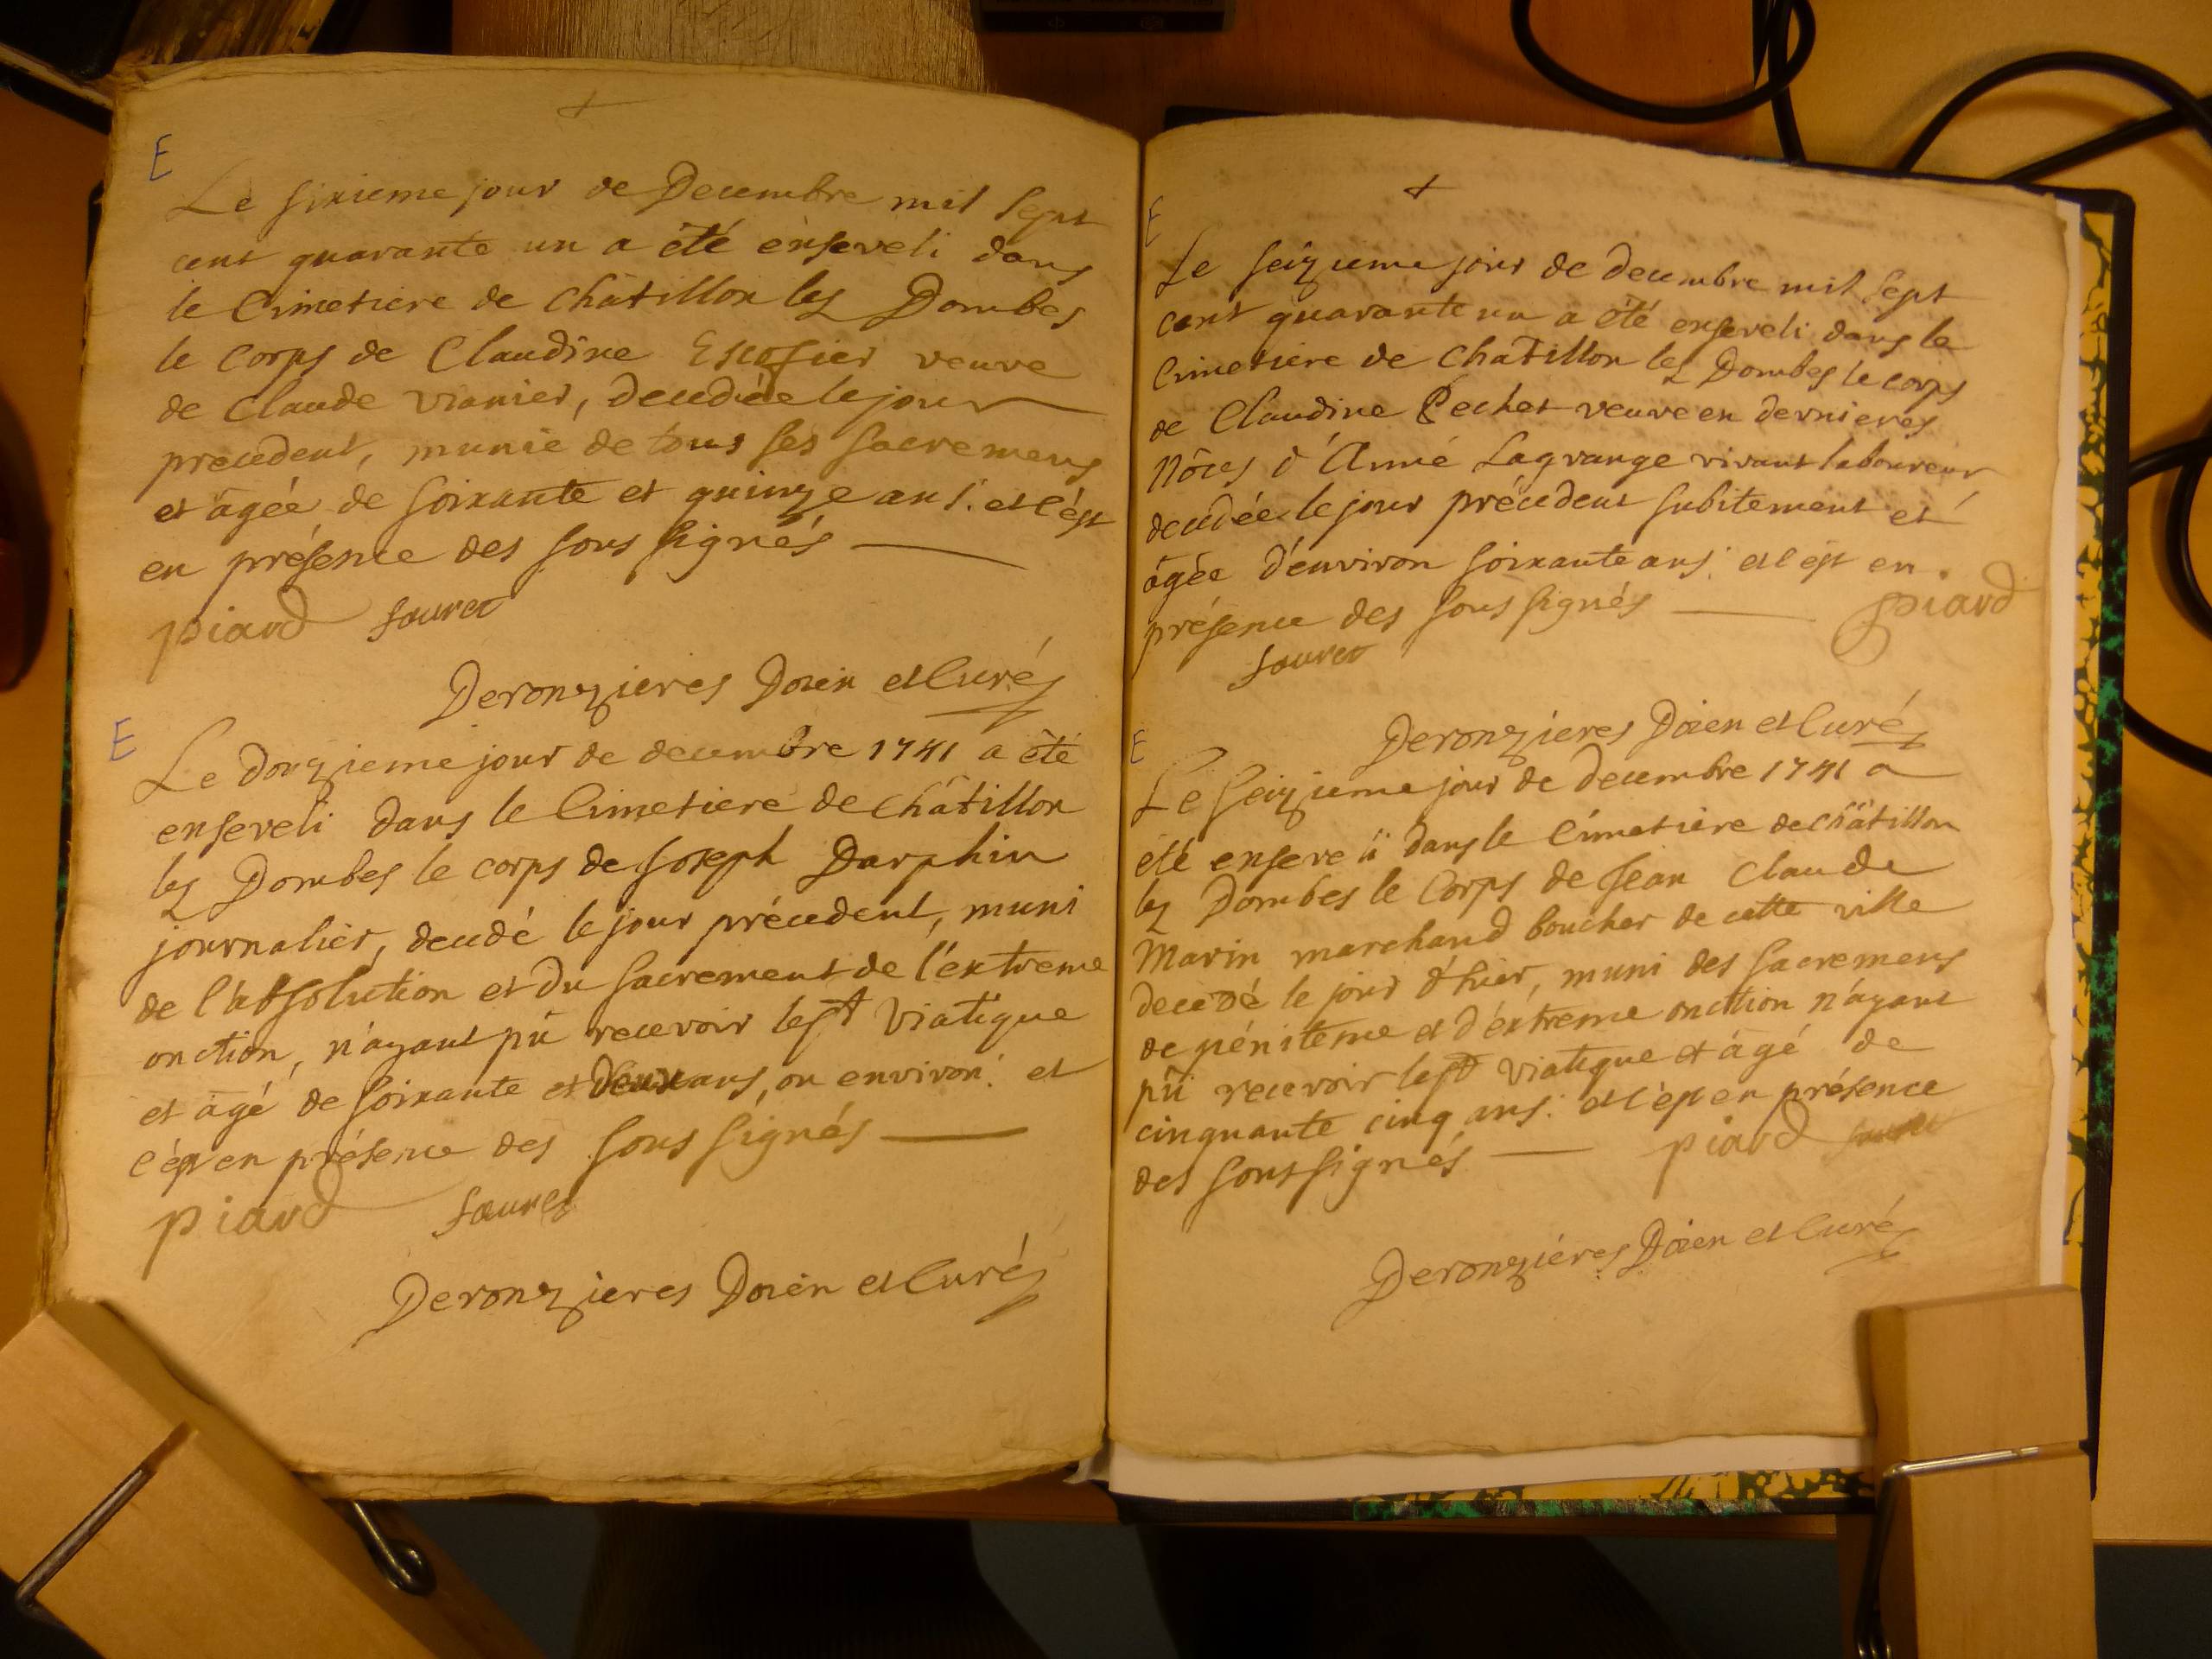 E
Le sixieme jour de Decembre mil sept
cent quarante un a été enseveli dans
le Cimetiere de châtillon les Dombes
le corps de Claudine Escofier veuve
de claude vianier, decedée le jour
precedent, munie de tous ses sacremens
et agée de soixante et quinze ans. et c'est
en présence des sous signés
piard sauret
Deronzieres Doien et Curé
E
Le douzieme jour de decembre 1741 a été
enseveli dans le Cimetiere de châtillon
les Dombes le corps de Joseph Darphin
journalier, decedé le jour précedent, muni
de l'absolution et du sacrement de l'extreme
onction, n'ayant pû recevoir le st viatique
et agé de soixante et deux ans, ou environ. et
c'est en présence des sous signés
piard sauret
Deronzieres Doien et Curé
E
Le seizieme jour de decembre mil sept
cent quarante un a été enseveli dans le
Cimetiere de chatillon les Dombes le corps
de Claudine Pechet veuve en dernieres
nôces d'Anné Lagrange vivant laboureur
decedée le jour précedent subitement et
âgée d'environ soixante ans. et c'est en
présence des sous signés piard
sauret
Deronzieres Doien et Curé
E
Le seizieme jour de decembre 1741 a
été enseveli dans le Cimetiere de châtillon
les Dombes le Corps de Jean Claude
Marin marchand boucher de cette ville
decedé le jour d'hier, muni des sacremens
de pénitence et d'éxtreme onction n'ayant
pû recevoir le st viatique et àgé de
cinquante cinq ans. et c'est en présence
des sous signés piard sauret
Deronziéres Doien et Curé